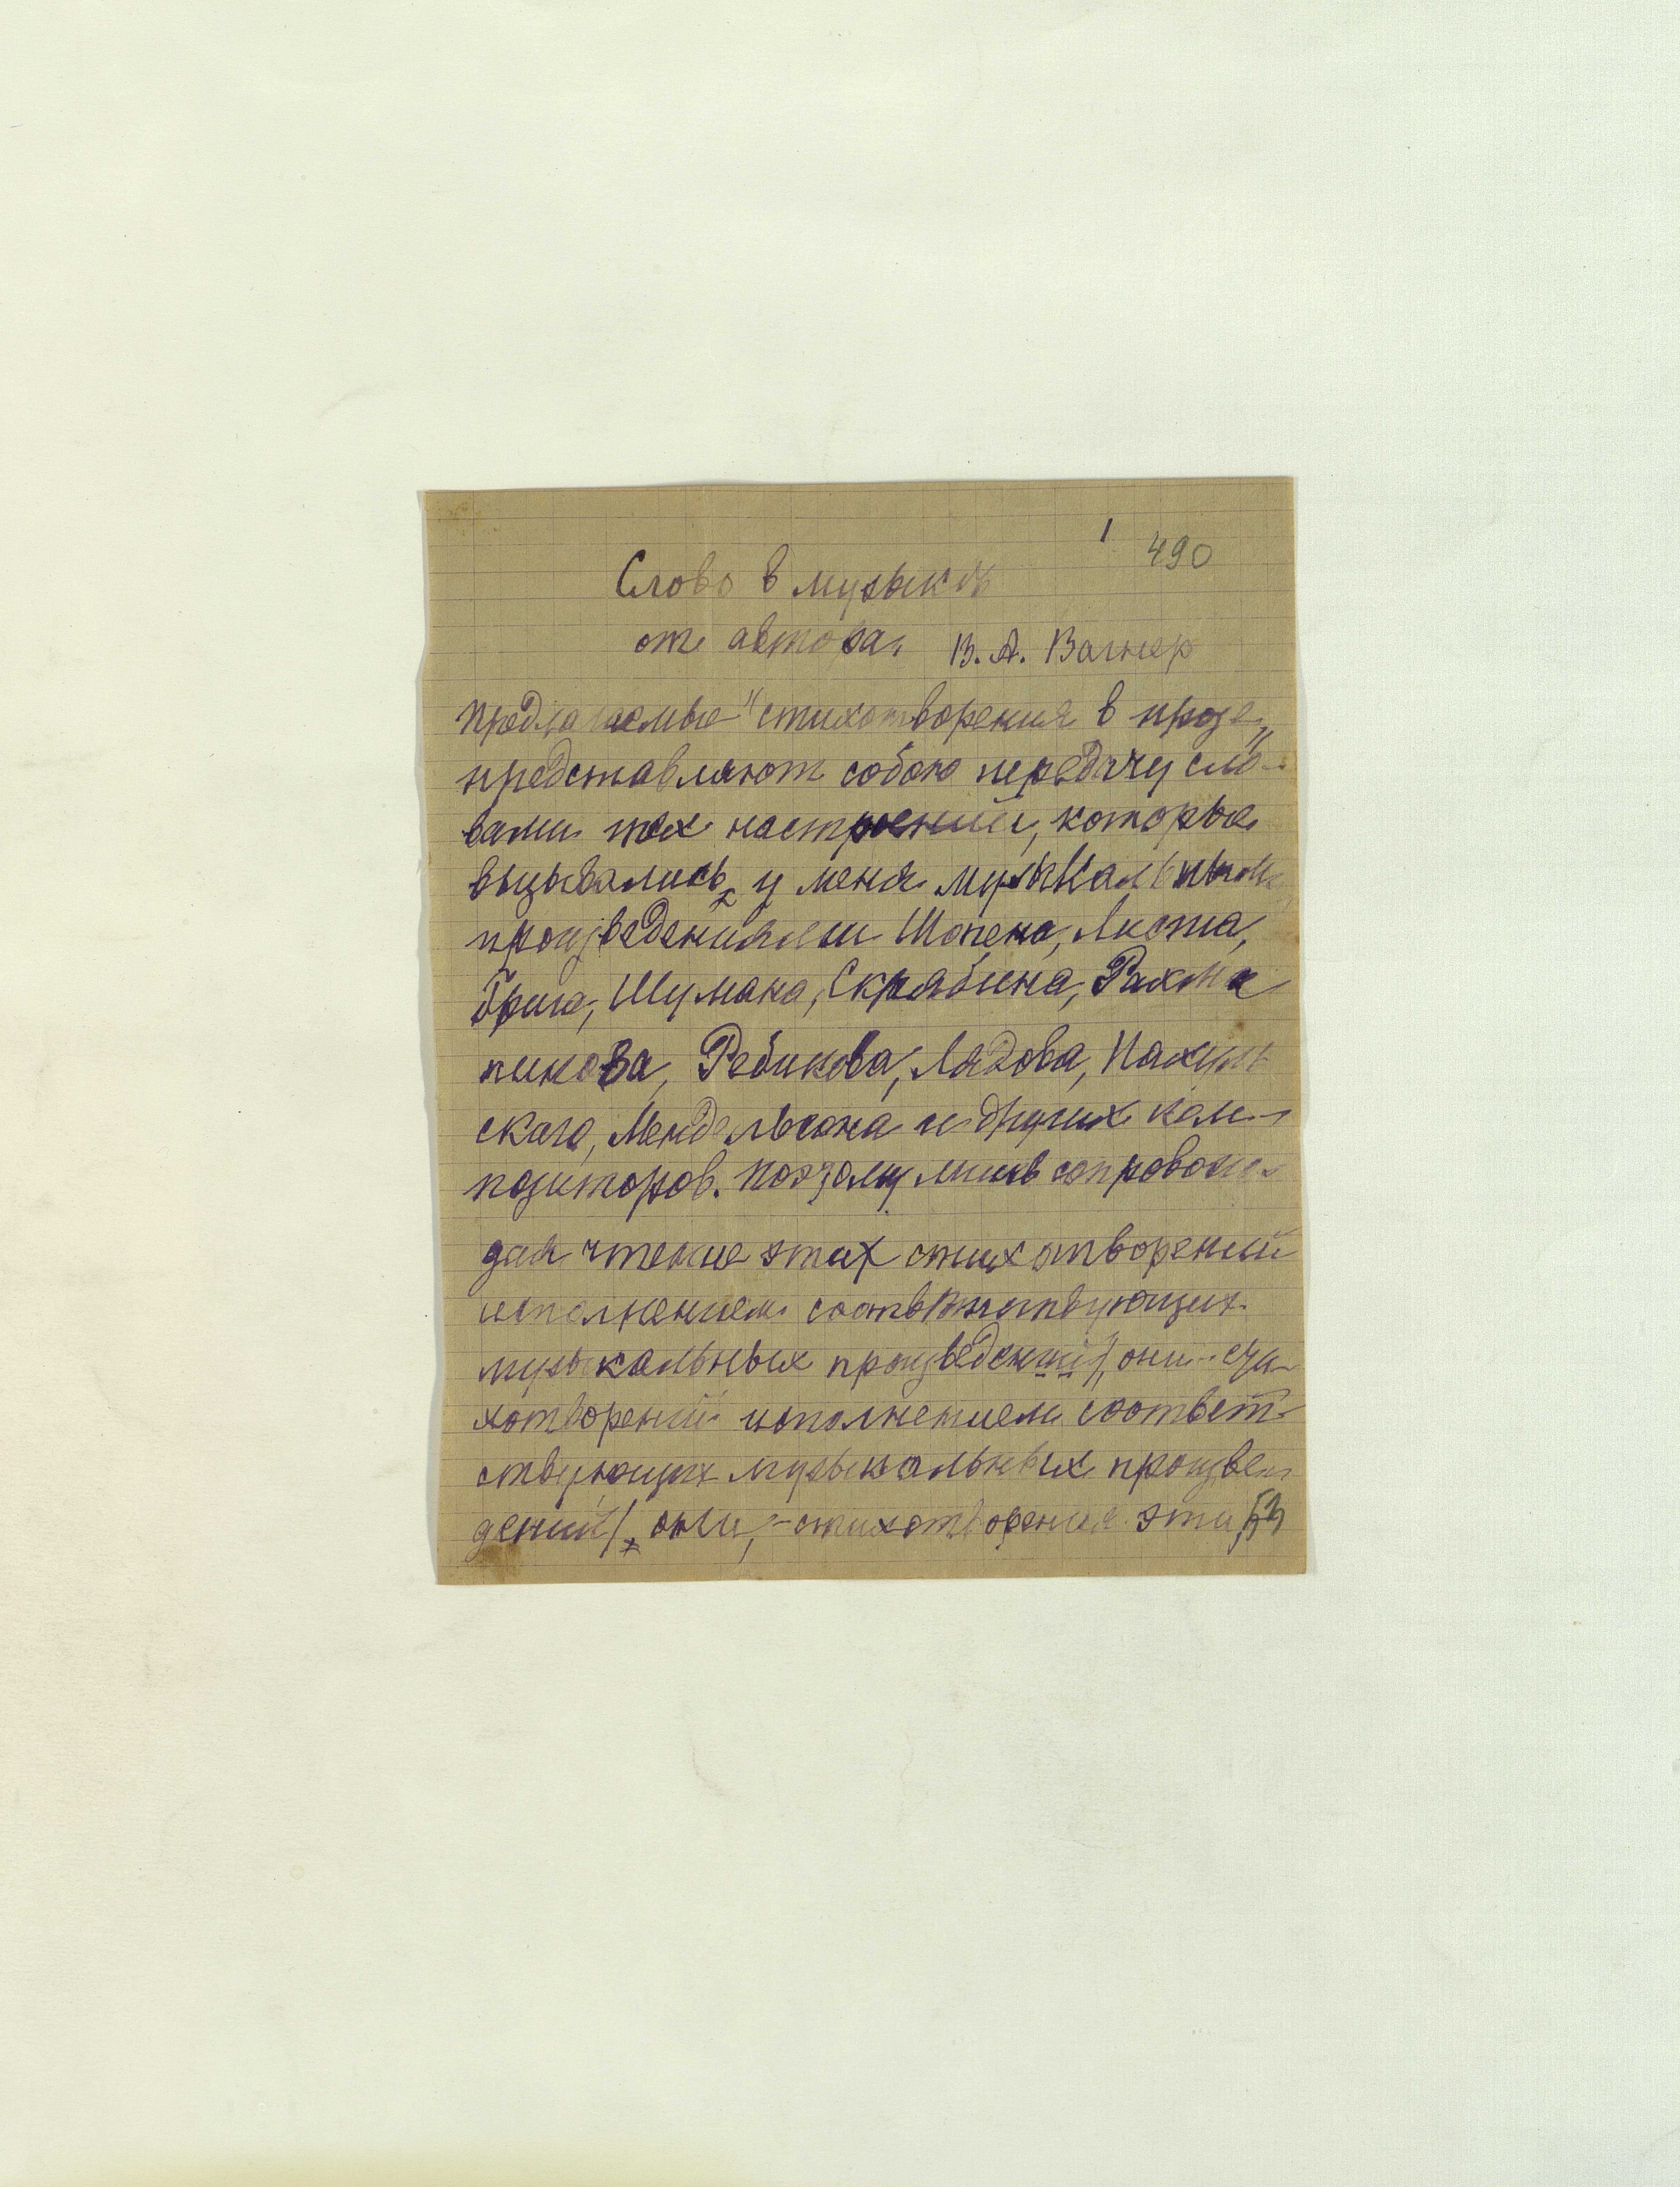 1 490
Слово в музыке
от автора. В. А. Вагнер
Предлагаемые "стихотворения в прозе"
представляют собою передачу сло-
вами тех настроений, которые
вызывались у меня музыкальными
произведениями Шопена, Листа,
Грига, Шумана, Скрябина, Рахма
нинова, Ребикова, Лядова, Пахуль
ского, Мендельсона и других ком-
позиторов. Поэтому лишь сопровож-
дая чтение этих стихотворений
исполнением соответствующих
музыкальных произведений, они - сти-
хотворений исполнением соответ-
ствующих музыкальных произве-
дений/, они, - стихотворения эти,